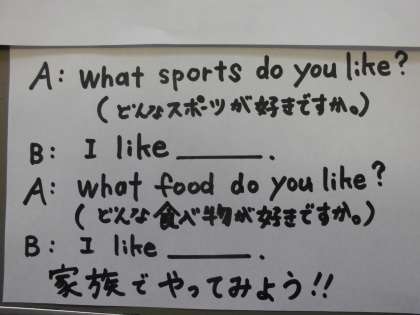 A: what sports do you like?
(どんなスポーツが好きですか。)
B: I like ______.
A: what food do you like?
(どんな食べ物が好きですか。)
B: I like ______.
家族でやってみよう!!